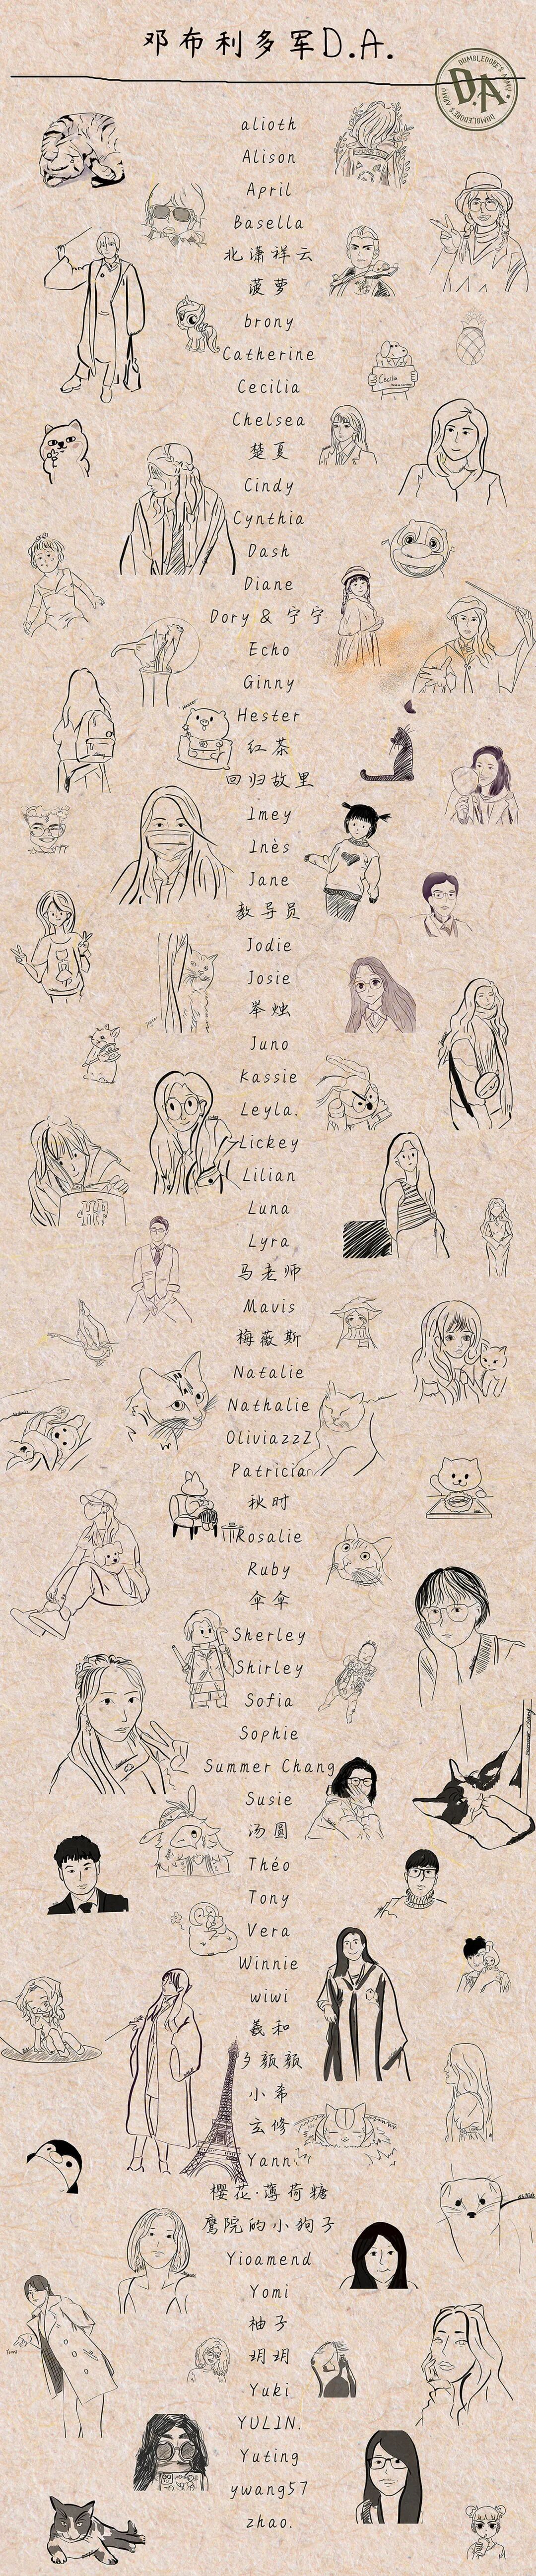 邓布利多军D.A.
DUMBLEDORE'S ARMY
D.A.
DUMBLEDORE'S ARMY
alioth
Alison
April
Basella
北潇祥云
菠萝
brony
Catherine
Cecilia
Cecilia
Chelsea
楚夏
Cindy
Cynthia
Dash
Diane
Dory & 宁宁
Echo
Ginny
Hester
红茶
回归故里
Imey
Inès
Jane
教导员
Jodie
Josie
举烛
Juno
Kassie
Leyla.
Lickey
Lilian
Luna
Lyra
马老师
Mavis
梅薇斯
Natalie
Nathalie
OliviazzZ
Patricia
秋时
Rosalie
Ruby
伞伞
Sherley
Shirley
Sofia
Sophie
Summer Chang
Susie
汤圆
Théo
Tony
Vera
Winnie
wiwi
羲和
小希
玄修
Yann
樱花·薄荷糖
鹰院的小狗子
Yioamend
Yomi
柚子
玥玥
Yuki
YULIN.
Yuting
ywang57
zhao.